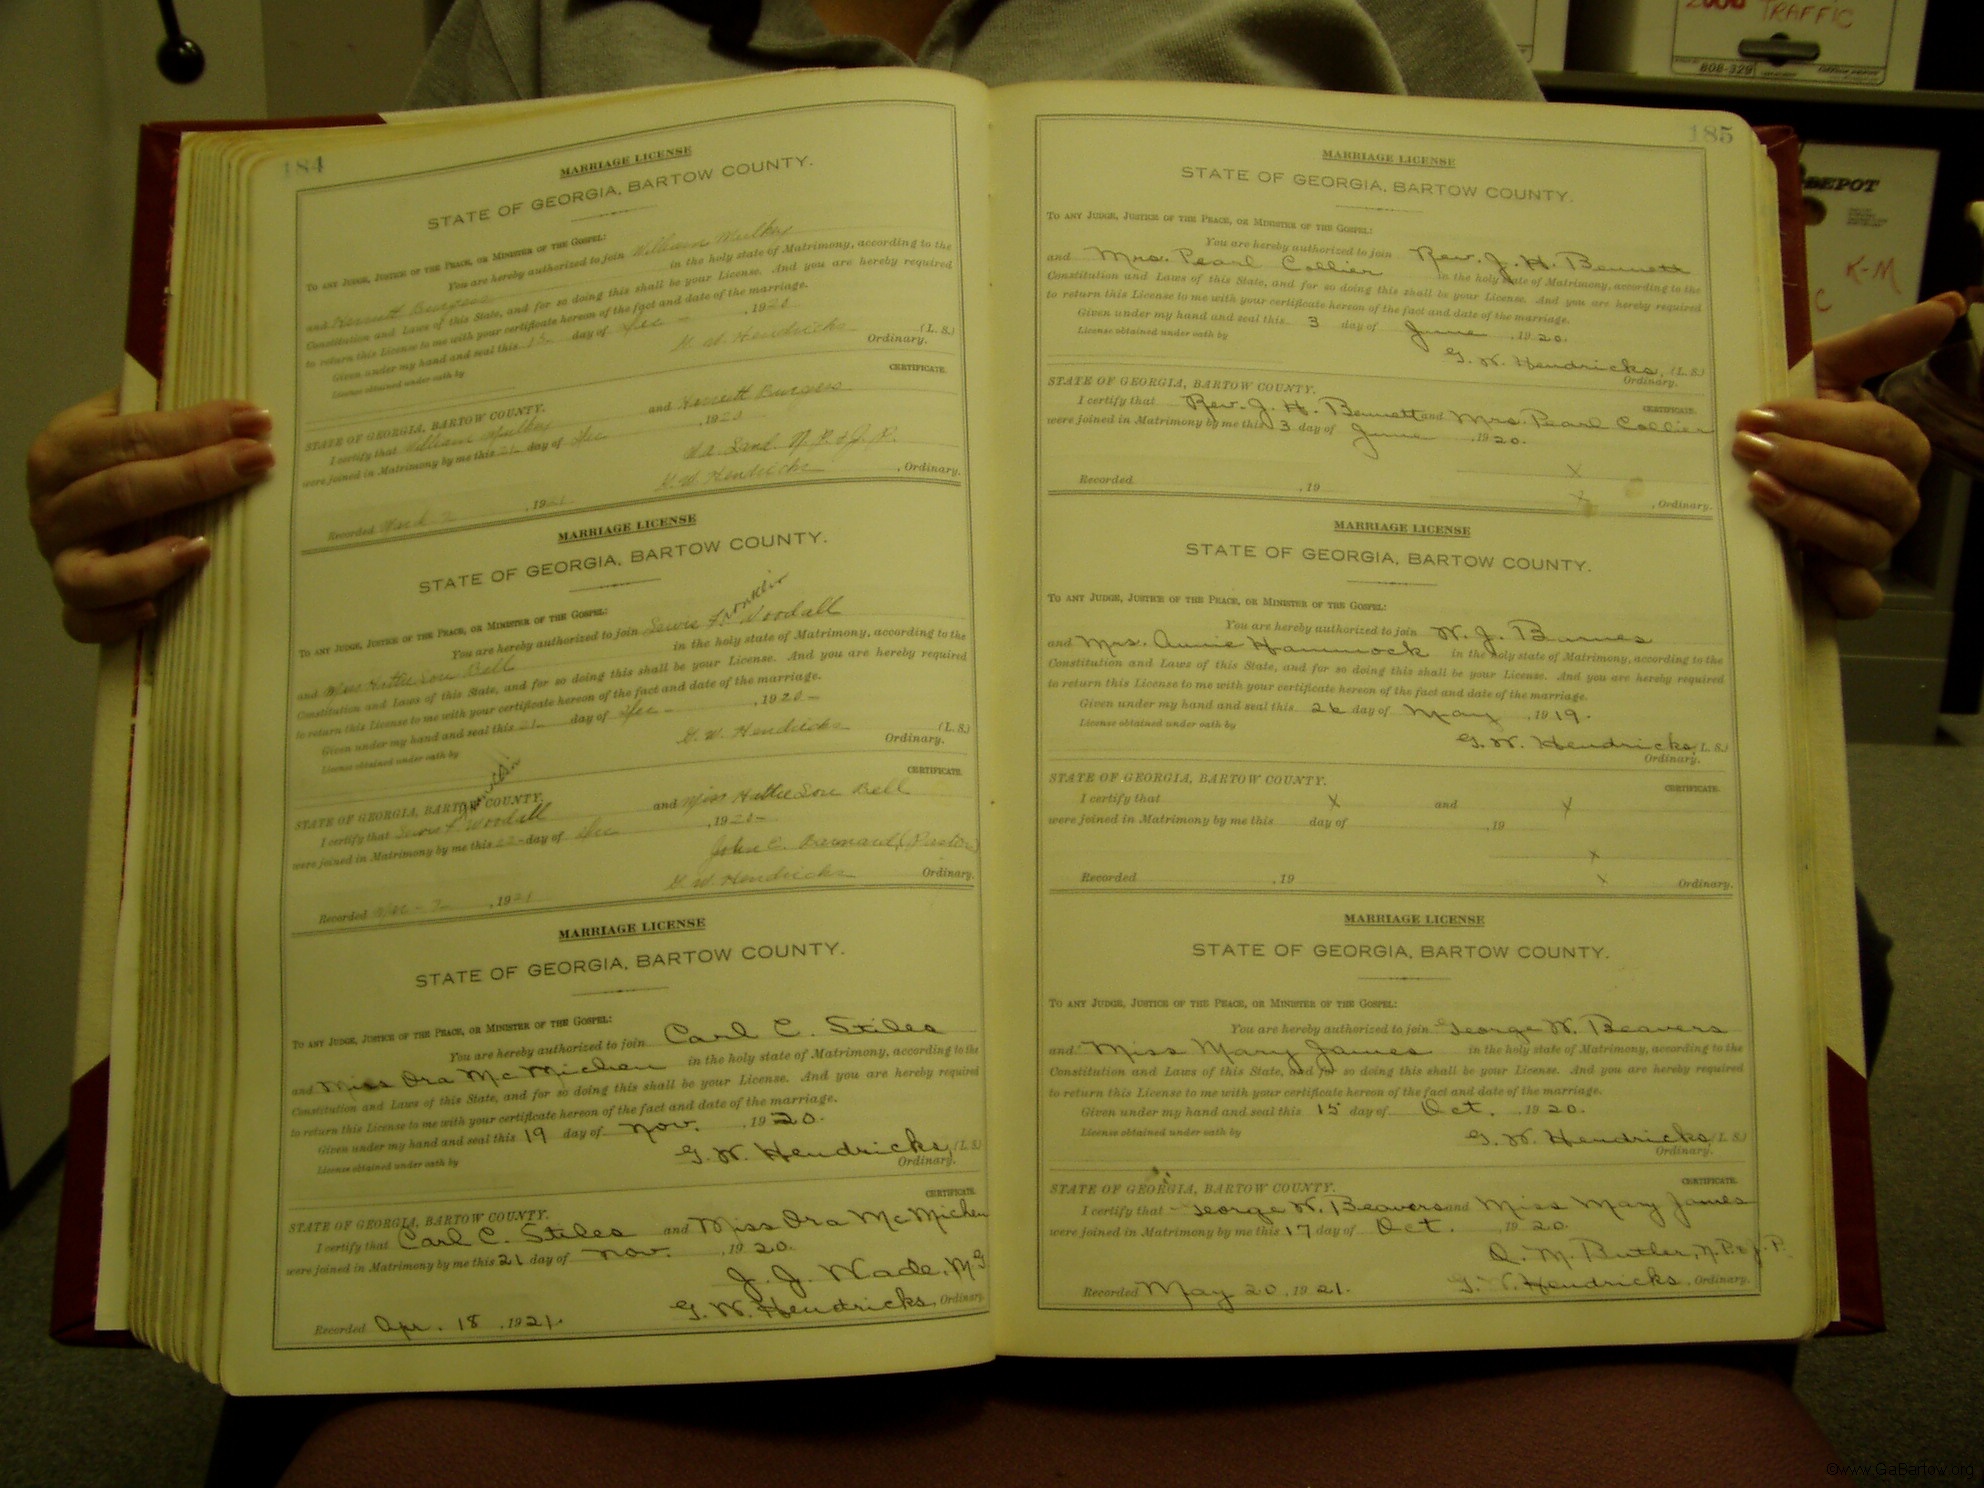 2000 TRAFFIC
808-329
DEPOT
K-M
C
184
MARRIAGE LICENSE
STATE OF GEORGIA, BARTOW COUNTY.
TO ANY JUDGE, JUSTICE OF THE PEACE, OR MINISTER OF THE GOSPEL:
You are hereby authorized to join William Mulkey
and Harriett Burgess in the holy state of Matrimony, according to the
Constitution and Laws of this State, and for so doing this shall be your License. And you are hereby required
to return this License to me with your certificate hereon of the fact and date of the marriage.
Given under my hand and seal this day of Dec , 1920
License obtained under oath by G. W. Hendricks (L. S.)
Ordinary.
CERTIFICATE.
STATE OF GEORGIA, BARTOW COUNTY.
I certify that William Mulkey and Harriett Burgess
were joined in Matrimony by me this day of Dec , 1920
N. P. & J. P.
G. W. Hendricks , Ordinary.
Recorded , 1921
MARRIAGE LICENSE
STATE OF GEORGIA, BARTOW COUNTY.
TO ANY JUDGE, JUSTICE OF THE PEACE, OR MINISTER OF THE GOSPEL:
Franklin
You are hereby authorized to join Lewis F. Woodall
and Miss Hattie Lou Bell in the holy state of Matrimony, according to the
Constitution and Laws of this State, and for so doing this shall be your License. And you are hereby required
to return this License to me with your certificate hereon of the fact and date of the marriage.
Given under my hand and seal this 21 day of Dec , 1920
License obtained under oath by G. W. Hendricks (L. S.)
Ordinary.
CERTIFICATE.
Franklin
STATE OF GEORGIA, BARTOW COUNTY.
I certify that Lewis F. Woodall and Miss Hattie Lou Bell
were joined in Matrimony by me this 22 day of Dec , 1920
John C. Barnard, (Pastor)
G. W. Hendricks Ordinary.
Recorded , 1921
MARRIAGE LICENSE
STATE OF GEORGIA, BARTOW COUNTY.
TO ANY JUDGE, JUSTICE OF THE PEACE, OR MINISTER OF THE GOSPEL:
You are hereby authorized to join Carl C. Stiles
and Miss Ora McMichen in the holy state of Matrimony, according to the
Constitution and Laws of this State, and for so doing this shall be your License. And you are hereby required
to return this License to me with your certificate hereon of the fact and date of the marriage.
Given under my hand and seal this 19 day of Nov. , 1920.
License obtained under oath by G. W. Hendricks, (L. S.)
Ordinary.
CERTIFICATE.
STATE OF GEORGIA, BARTOW COUNTY.
I certify that Carl C. Stiles and Miss Ora McMichen
were joined in Matrimony by me this 21 day of Nov. , 1920.
J. J. Wade, M G
G. W. Hendricks, Ordinary.
Recorded Apr. 18 , 1921.
185
MARRIAGE LICENSE
STATE OF GEORGIA, BARTOW COUNTY.
TO ANY JUDGE, JUSTICE OF THE PEACE, OR MINISTER OF THE GOSPEL:
You are hereby authorized to join Rev. J. H. Bennett
and Mrs. Pearl Collier in the holy state of Matrimony, according to the
Constitution and Laws of this State, and for so doing this shall be your License. And you are hereby required
to return this License to me with your certificate hereon of the fact and date of the marriage.
Given under my hand and seal this 3 day of June , 1920.
License obtained under oath by G. W. Hendricks, (L. S.)
Ordinary.
STATE OF GEORGIA, BARTOW COUNTY. CERTIFICATE.
I certify that Rev. J. H. Bennett and Mrs. Pearl Collier
were joined in Matrimony by me this 3 day of June , 1920.
x
Recorded , 19 x , Ordinary.
MARRIAGE LICENSE
STATE OF GEORGIA, BARTOW COUNTY.
TO ANY JUDGE, JUSTICE OF THE PEACE, OR MINISTER OF THE GOSPEL:
You are hereby authorized to join W. J. Barnes
and Mrs. Annie Hammock in the holy state of Matrimony, according to the
Constitution and Laws of this State, and for so doing this shall be your License. And you are hereby required
to return this License to me with your certificate hereon of the fact and date of the marriage.
Given under my hand and seal this 26 day of May , 1919.
License obtained under oath by G. W. Hendricks, (L. S.)
Ordinary.
STATE OF GEORGIA, BARTOW COUNTY. CERTIFICATE.
I certify that x and x
were joined in Matrimony by me this day of , 19
x
Recorded , 19 x Ordinary.
MARRIAGE LICENSE
STATE OF GEORGIA, BARTOW COUNTY.
TO ANY JUDGE, JUSTICE OF THE PEACE, OR MINISTER OF THE GOSPEL:
You are hereby authorized to join George W. Beavers
and Miss Mary James in the holy state of Matrimony, according to the
Constitution and Laws of this State, and for so doing this shall be your License. And you are hereby required
to return this License to me with your certificate hereon of the fact and date of the marriage.
Given under my hand and seal this 15 day of Oct. , 1920.
License obtained under oath by G. W. Hendricks, (L. S.)
Ordinary.
STATE OF GEORGIA, BARTOW COUNTY. CERTIFICATE.
I certify that George W. Beavers and Miss Mary James
were joined in Matrimony by me this 17 day of Oct. , 1920.
Q. M. Butler, N. P. & J. P.
Recorded May 20, 1921. G. W. Hendricks, Ordinary.
©www.GaBartow.org